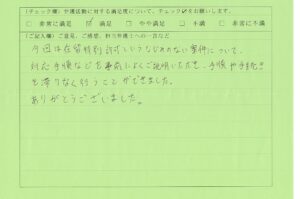 （チェック欄）弁護活動に対する満足度について、チェック☑をお願いします。
□ 非常に満足 ☑ 満足 □ やや満足 □ 不満 □ 非常に不満
（ご記入欄）ご意見、ご感想、担当弁護士への一言など
今回は在留特別許可というなじめない案件について、
対応手順などを事前によくご説明いただき、手順や手続き
を滞りなく行うことができました。
ありがとうございました。